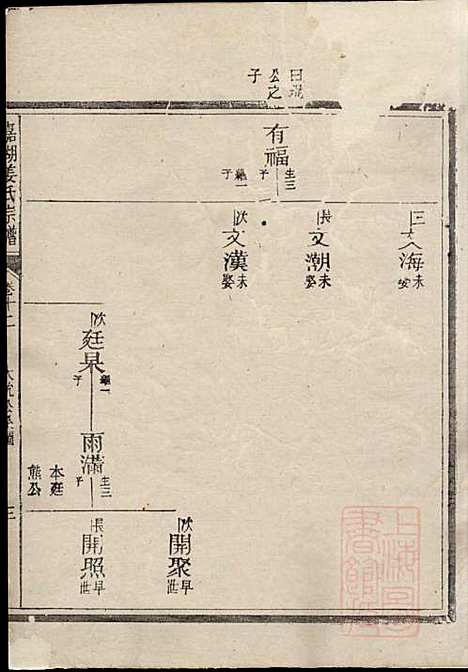 曰琨公之子
有福 生三子 繼一子
三 文海 未娶
長 文潮 未娶
次 文漢 未娶
次 廷杲 繼一子
雨滿 生三子
本廷熊公
次 開聚 早世
長 開照 早世
嘉湖姜氏宗譜
卷十二
三
上海圖書館藏